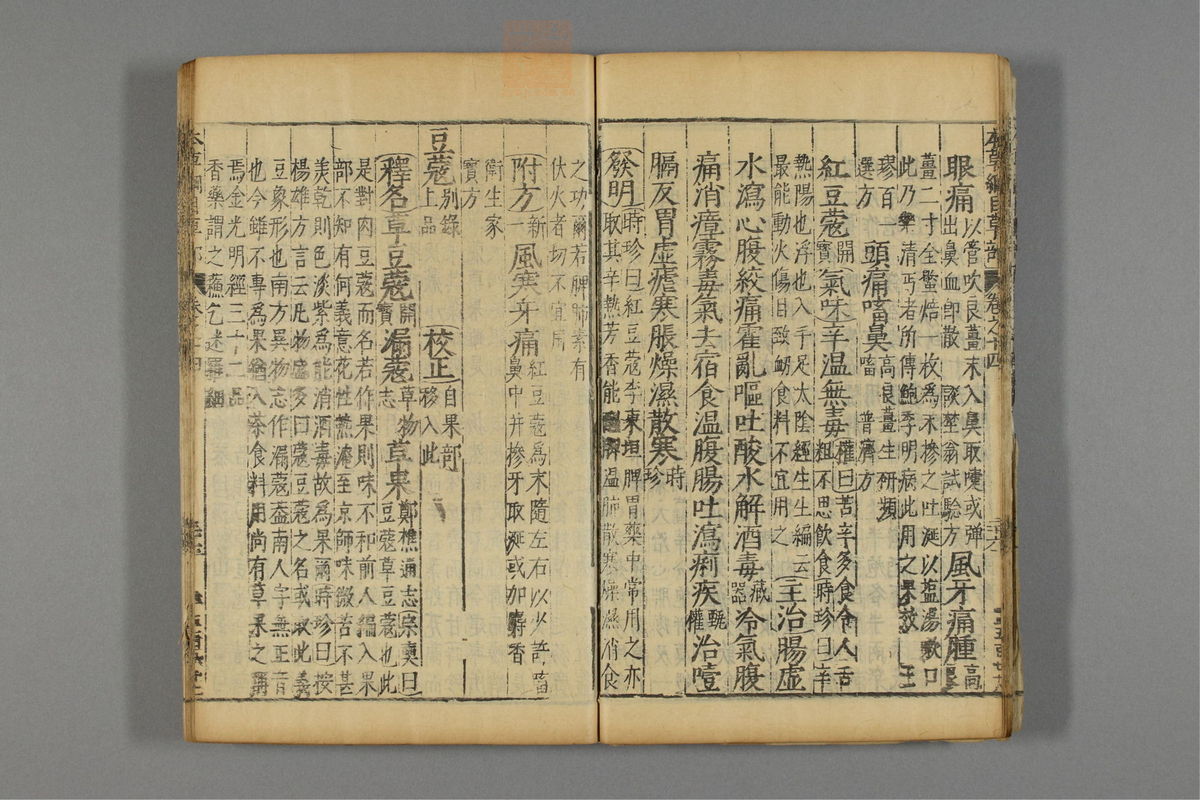 本草綱目草部 卷之十四
眼痛以管吹良薑末入鼻取嚏或彈出鼻血即散談埜翁試驗方風牙痛腫高良
薑二寸全蝎焙一枚爲末摻之吐涎以鹽湯漱口
此乃樂清丐者所傳鮑季明病此用之果效王
璆百一選方頭痛㗜鼻高良薑生研頻㗜普濟方
紅豆蔻開寶氣味辛溫無毒權曰苦辛多食令人舌粗不思飲食時珍曰辛
熱陽也浮也入手足太陰經生生編云
最能動火傷目致衄食料不宜用之主治腸虛
水瀉心腹絞痛霍亂嘔吐酸水解酒毒藏器冷氣腹
痛消瘴霧毒氣去宿食溫腹腸吐瀉痢疾甄權治噎
膈反胃虛瘧寒脹燥濕散寒時珍
發明時珍曰紅豆蔻李東垣脾胃藥中常用之亦
取其辛熱芳香能醒脾溫肺散寒燥濕消食
之功爾若脾肺素有
伏火者切不宜用
附方新一風寒牙痛紅豆蔻爲末隨左右以少許㗜鼻中并摻牙取涎或加麝香
衛生家
寶方
豆蔻別錄上品 校正自果部移入此
釋名草豆蔻開寶漏蔻異物志草果鄭樵通志宗奭曰豆蔻草豆蔻也此
是對肉豆蔻而名若作果則味不和前人編入果
部不知有何義意花性熱淹至京師味微苦不甚
美乾則色淡紫爲能消酒毒故爲果爾時珍曰按
楊雄方言云凡物盛多曰蔻豆蔻之名或取此義
豆象形也南方異物志作漏蔻葢南人字無正音
也今雖不專爲果猶入茶食料用尚有草果之稱
焉金光明經三十二品
香藥謂之蘇乞迷羅細
本草綱目草部 卷之十四